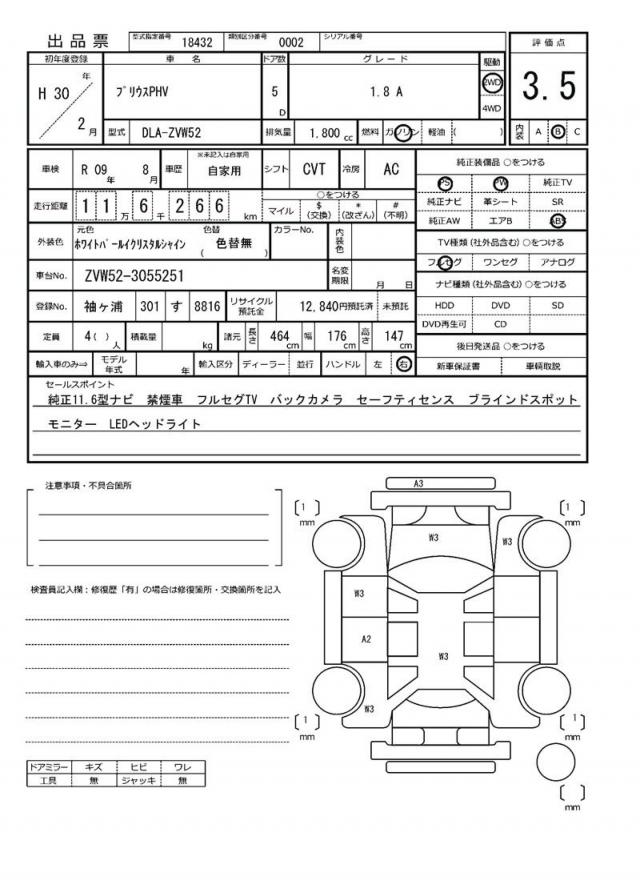 出品票 型式指定番号 18432 類別区分番号 0002 シリアル番号
評価点 3.5
内装 A B C
初年度登録 車名 ドア数 グレード 駆動
H 30 年 2 月 ﾌﾟﾘｳｽPHV 5 D 1.8 A 2WD 4WD
型式 DLA-ZVW52 排気量 1,800 cc 燃料 ガソリン 軽油 ( )
車検 R 09 年 8 月 車歴 ※未記入は自家用 自家用 シフト CVT 冷房 AC
走行距離 1 1 万 6 千 2 6 6 km
○をつける
マイル $ (交換) * (改ざん) # (不明)
外装色 元色 ﾎﾜｲﾄﾊﾟｰﾙｲｸﾘｽﾀﾙｼｬｲﾝ 色替 ( 色替無 ) カラーNo. 内装色
車台No. ZVW52-3055251 名変期限 月 日
登録No. 袖ヶ浦 301 す 8816 リサイクル預託金 12,840円預託済 未預託
定員 4( ) 人 積載量 kg 諸元 長さ 464 cm 幅 176 cm 高さ 147 cm
輸入車のみ⇒ モデル年式 年 輸入区分 ディーラー 並行 ハンドル 左 右
純正装備品 ○をつける
PS PW 純正TV
純正ナビ 革シート SR
純正AW エアB ABS
TV種類(社外品含む) ○をつける
フルセグ ワンセグ アナログ
ナビ種類(社外品含む) ○をつける
HDD DVD SD
DVD再生可 CD
後日発送品 ○をつける
新車保証書 車輌取説
セールスポイント
純正11.6型ナビ 禁煙車 フルセグTV バックカメラ セーフティセンス ブラインドスポット
モニター LEDヘッドライト
注意事項・不具合箇所
検査員記入欄：修復歴「有」の場合は修復箇所・交換箇所を記入
ドアミラー キズ ヒビ ワレ
工具 無 ジャッキ 無
A3
[ 1 ] mm
[ 1 ] mm
W3
W3
W3
A2
W3
W3
[ 1 ] mm
[ 1 ] mm
[ ] mm